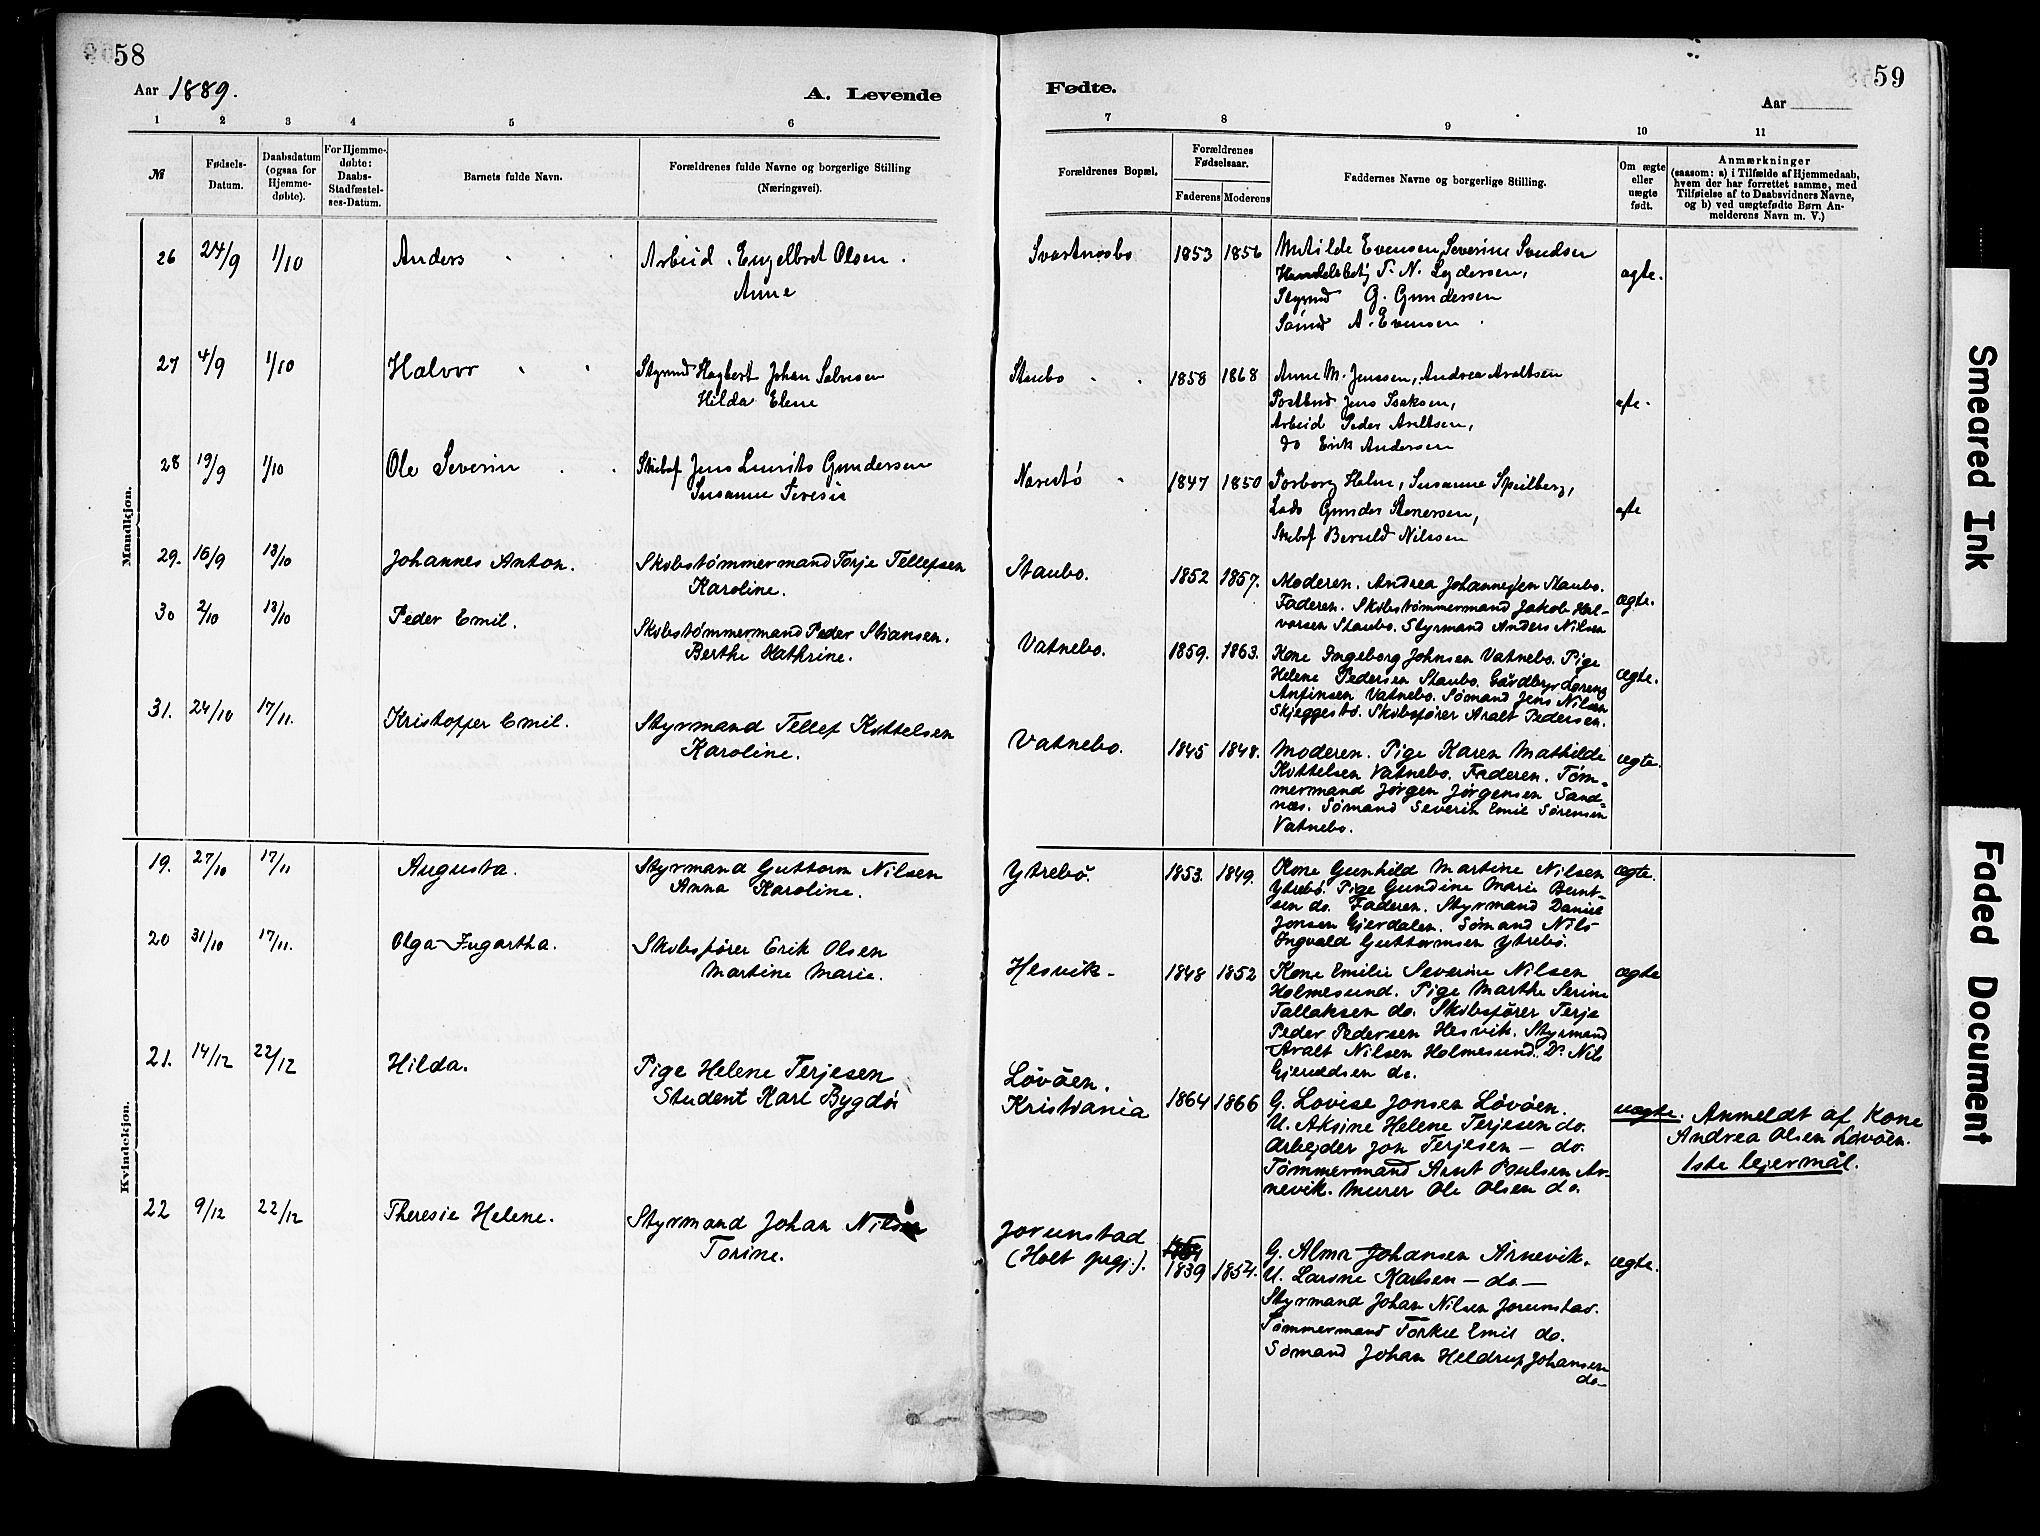 58
Aar 1889.
A. Levende
1 2 3 4 5 6
№
Fødsels-
Datum.
Daabsdatum
(ogsaa for
Hjemme-
døbte).
For Hjemme-
døbte:
Daabs-
Stadfæstel-
ses-Datum.
Barnets fulde Navn.
Forældrenes fulde Navne og borgerlige Stilling
(Næringsvei).
Mandkjøn.
26 24/9 1/10 Anders Arbeid. Engelbret Olsen.
Anne
27 4/9 1/10 Halvor Styrmd Hagbert Johan Salvesen
Hilda Elene
28 19/9 1/10 Ole Severin Skibsf Jens Laurits Gundersen
Susanne Teresie
29. 16/9 13/10 Johannes Anton. Skibstømmermand Torje Tellefsen
Karoline.
30 2/10 13/10 Peder Emil. Skibstømmermand Peder Stiansen.
Berthe Kathrine.
31. 24/10 17/11. Kristoffer Emil. Styrmand Tellef Kittelsen
Karoline.
Kvindekjøn.
19. 27/10 17/11 Augusta. Styrmand Guttorm Nilsen
Anna Karoline.
20 31/10 17/11. Olga Ingartha. Skibsfører Erik Olsen
Martine Marie.
21. 14/12 22/12 Hilda. Pige Helene Terjesen
Student Karl Bygdø
22 9/12 22/12 Theresie Helene. Styrmand Johan Nilsen
Torine.
59
Fødte.
Aar
7 8 9 10 11
Forældrenes Bopæl.
Forældrenes
Fødselsaar.
Faderens Moderens
Faddernes Navne og borgerlige Stilling.
Om ægte
eller
uægte
født.
Anmærkninger
(saasom: a) i Tilfælde af Hjemmedaab,
hvem der har forrettet samme, med
Tilføielse af to Daabsvidners Navne,
og b) ved uægtefødte Børn An-
melderens Navn m. V.)
Svartnesbo 1853 1856 Matilde Evensen, Severine Svendsen
Handelsbetj T. N. Lydersen,
Styrmd G. Gundersen
Sømd A. Evensen.
ægte.
Staubo 1858 1868 Anne M. Jenssen, Andrea Araltsen
Postbud Jens Isaksen,
Arbeid Peder Araltsen,
do Erik Andersen
ægte.
Narestø 1847 1850 Torborg Holm, Susanne Speilberg,
Lods Gunder Stenersen,
Skibsf Beruld Nilssen
ægte
Staubo. 1852 1857. Moderen. Andrea Johannesen Staubo.
Faderen. Skibstømmermand Jakob Hal-
vorsen Staubo. Styrmand Anders Nilsen
ægte.
Vatnebo. 1859. 1863. Kone Ingeborg Johnsen Vatnebo. Pige
Helene Pedersen Staubo. Gårdbryd Lorens
Anfinsen Vatnebo. Sømand Jens Nilsen
Skjeggestø. Skibsfører Aralt Pedersen.
ægte.
Vatnebo. 1845 1848. Moderen. Pige Karen Mathilde
Kittelsen Vatnebo. Faderen. Tøm-
mermand Jørgen Jørgensen Sand-
næs. Sømand Severin Emil Sørensen
Vatnebo.
ægte.
Ytrebø. 1853. 1849. Kone Gunhild Martine Nilsen
Ytrebø. Pige Gundine Marie Bernt-
sen do. Faderen. Styrmand Daniel
Jonsen Gjerdalen. Sømand Nils
Ingvald Guttormsen Ytrebø.
ægte.
Hesvik- 1848 1852 Kone Emilie Severine Nilsen
Holmesund. Pige Marthe Serine
Tallaksen do. Skibsfører Terje
Peder Pedersen Hesvik. Styrmand
Aralt Nilsen Holmesund. Do Nils
Gjeruldsen do.
ægte
Løvøen.
Kristiania 1864 1866 G. Lovise Jonsen Løvøen.
U. Aksine Helene Terjesen do.
Arbejder Jon Terjesen — do.
Tømmermand Arnt Poulsen Ar-
nevik. Murer Ole Olsen do.
uægte. Anmeldt af Kone
Andrea Olsen Løvøen.
1ste lejermål.
Jorunstad
(Holt prgj.). 1839 1854. G. Alma Johansen Arnevik.
U. Larsine Karlsen — do —
Styrmand Johan Nilsen Jorunstad.
Tømmermand Torkel Emil do.
Sømand Johan Heldrup Johansen
do-
ægte.
Smeared Ink
Faded Document